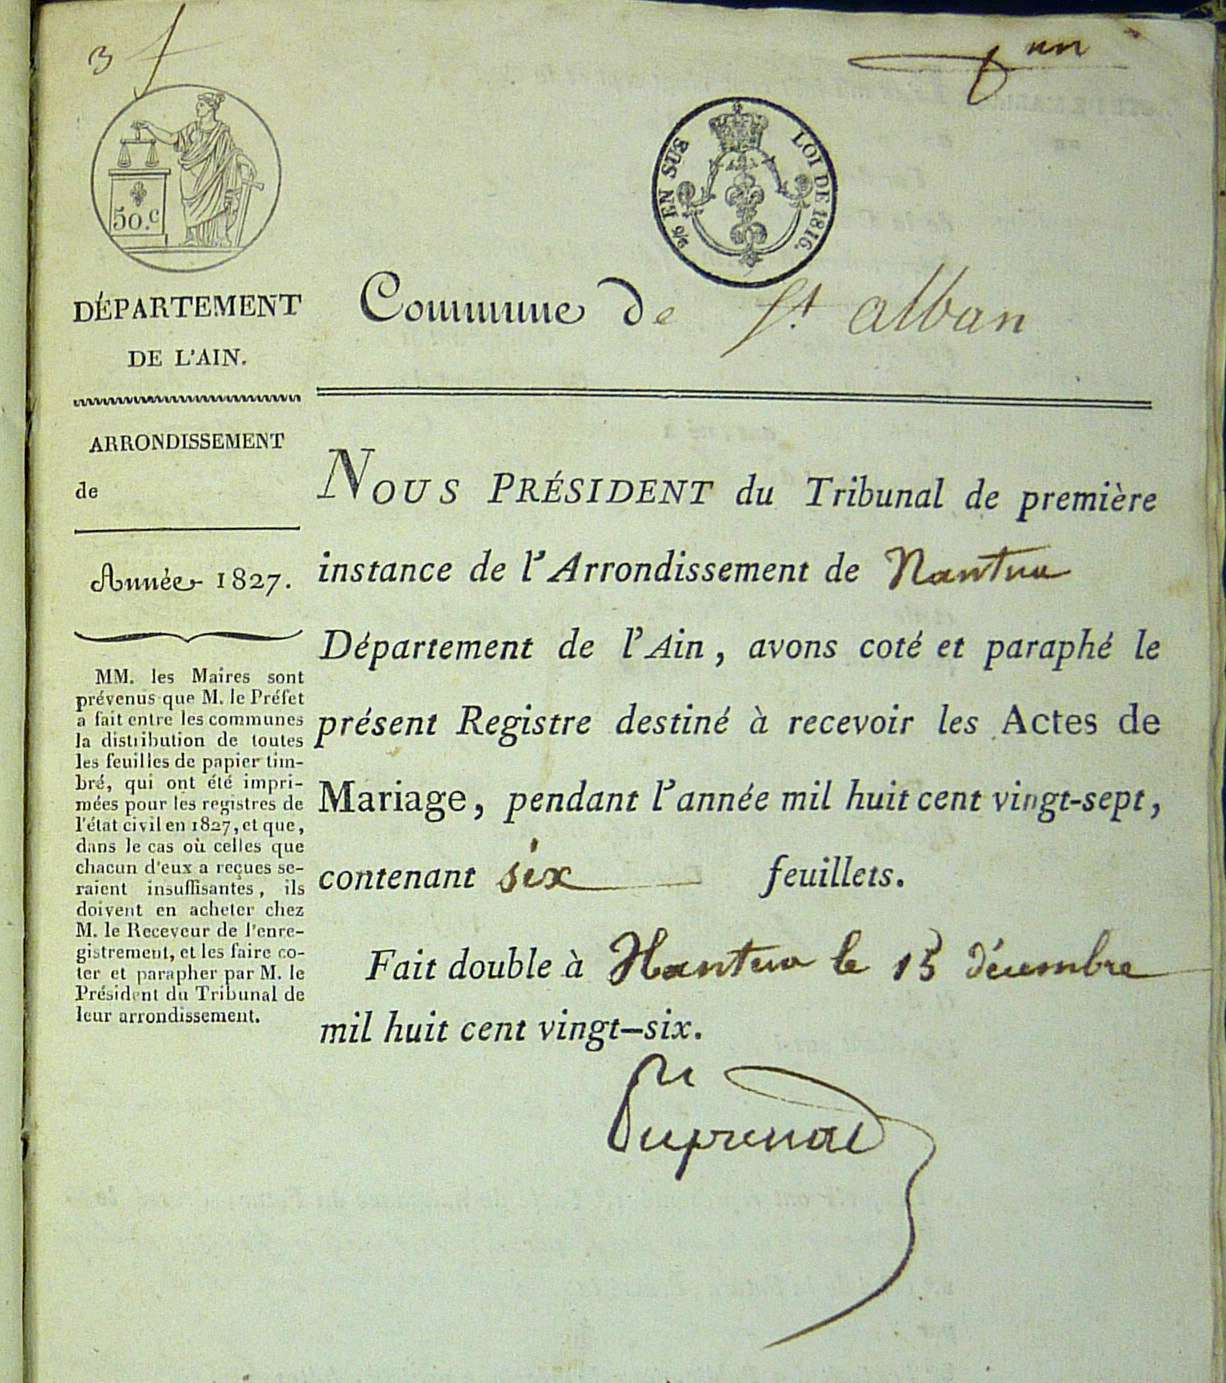 3
un
50.c
EN SUS
LOI DE 1816.
DÉPARTEMENT
DE L'AIN.
ARRONDISSEMENT
de
Année 1827.
MM. les Maires sont
prévenus que M. le Préfet
a fait entre les communes
la distribution de toutes
les feuilles de papier tim-
bré, qui ont été impri-
mées pour les registres de
l'état civil en 1827, et que,
dans le cas où celles que
chacun d'eux a reçues se-
raient insuffisantes, ils
doivent en acheter chez
M. le Receveur de l'enre-
gistrement, et les faire co-
ter et parapher par M. le
Président du Tribunal de
leur arrondissement.
Commune de St. alban
NOUS PRÉSIDENT du Tribunal de première
instance de l'Arrondissement de Nantua
Département de l'Ain, avons coté et paraphé le
présent Registre destiné à recevoir les Actes de
Mariage, pendant l'année mil huit cent vingt-sept,
contenant six feuillets.
Fait double à Nantua le 15 décembre
mil huit cent vingt-six.